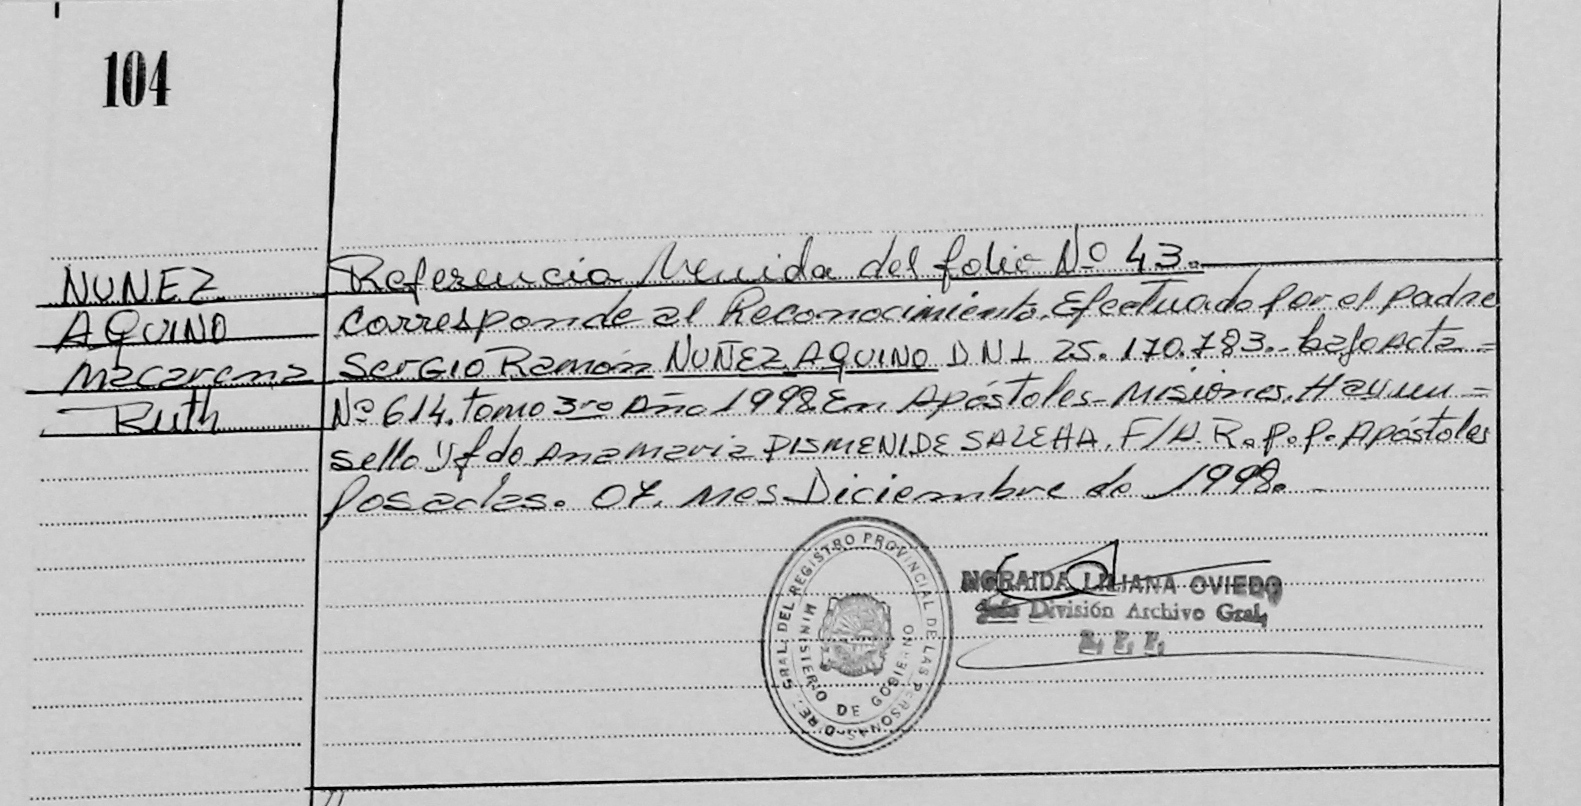 104
NUNEZ
AQUINO
Macarena
Ruth
Referencia Venida del folio Nº 43.
corresponde al Reconocimiento. Efectuado por el padre
Sergio Ramón NUÑEZ AQUINO DNI 25.170.783. bajo Acta =
Nº 614. tomo 3ro Año 1998 En Apóstoles - Misiones. Hay un =
sello y fdo Ana Maria DISMENI DE SALEHA. F/A. R. P. P. Apóstoles
Posadas. 07. Mes Diciembre de 1998. -
GRAL. DEL REGISTRO PROVINCIAL DE LAS PERSONAS
MINISTERIO DE GOBIERNO
NORAIDA LILIANA OVIEDO
Jefe División Archivo Gral.
R. P. P.